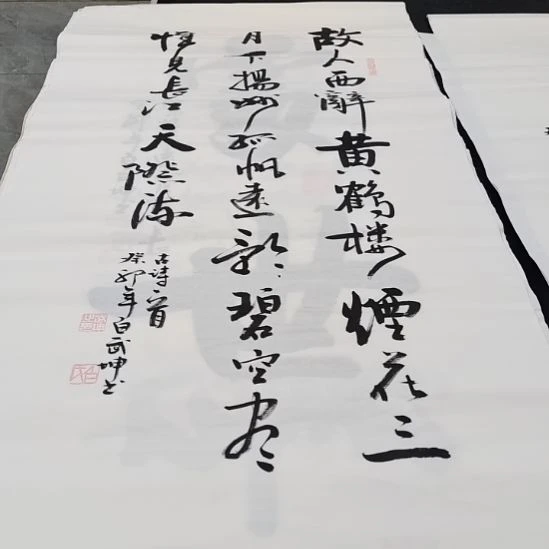 故人西辭黄鶴楼煙花三
月下揚州孤帆遠影碧空尽
惟見長江天際流
古詩一首
癸卯年白武坤书